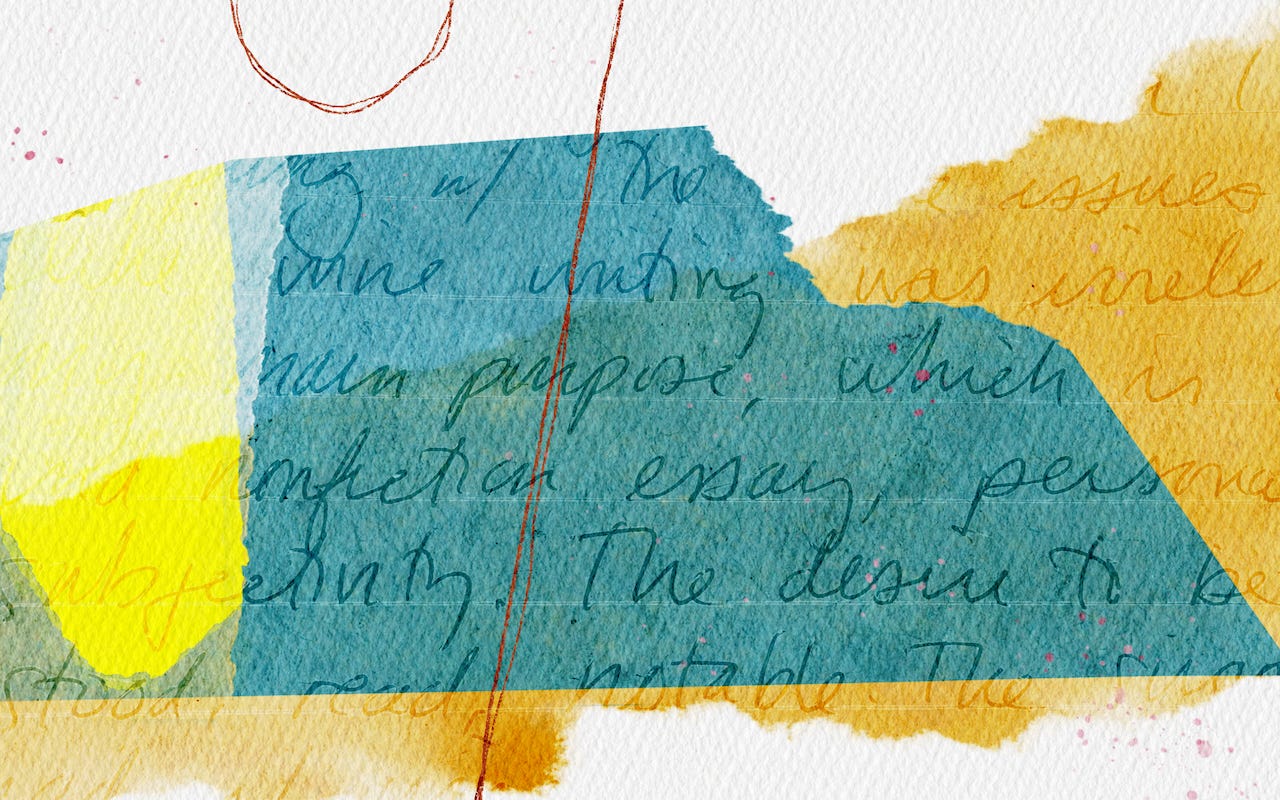 w/ the
issues
mine writing was
main purpose, which is
a nonfiction essay, persona
subjectivity. The desire to be
stood, read, notable. The